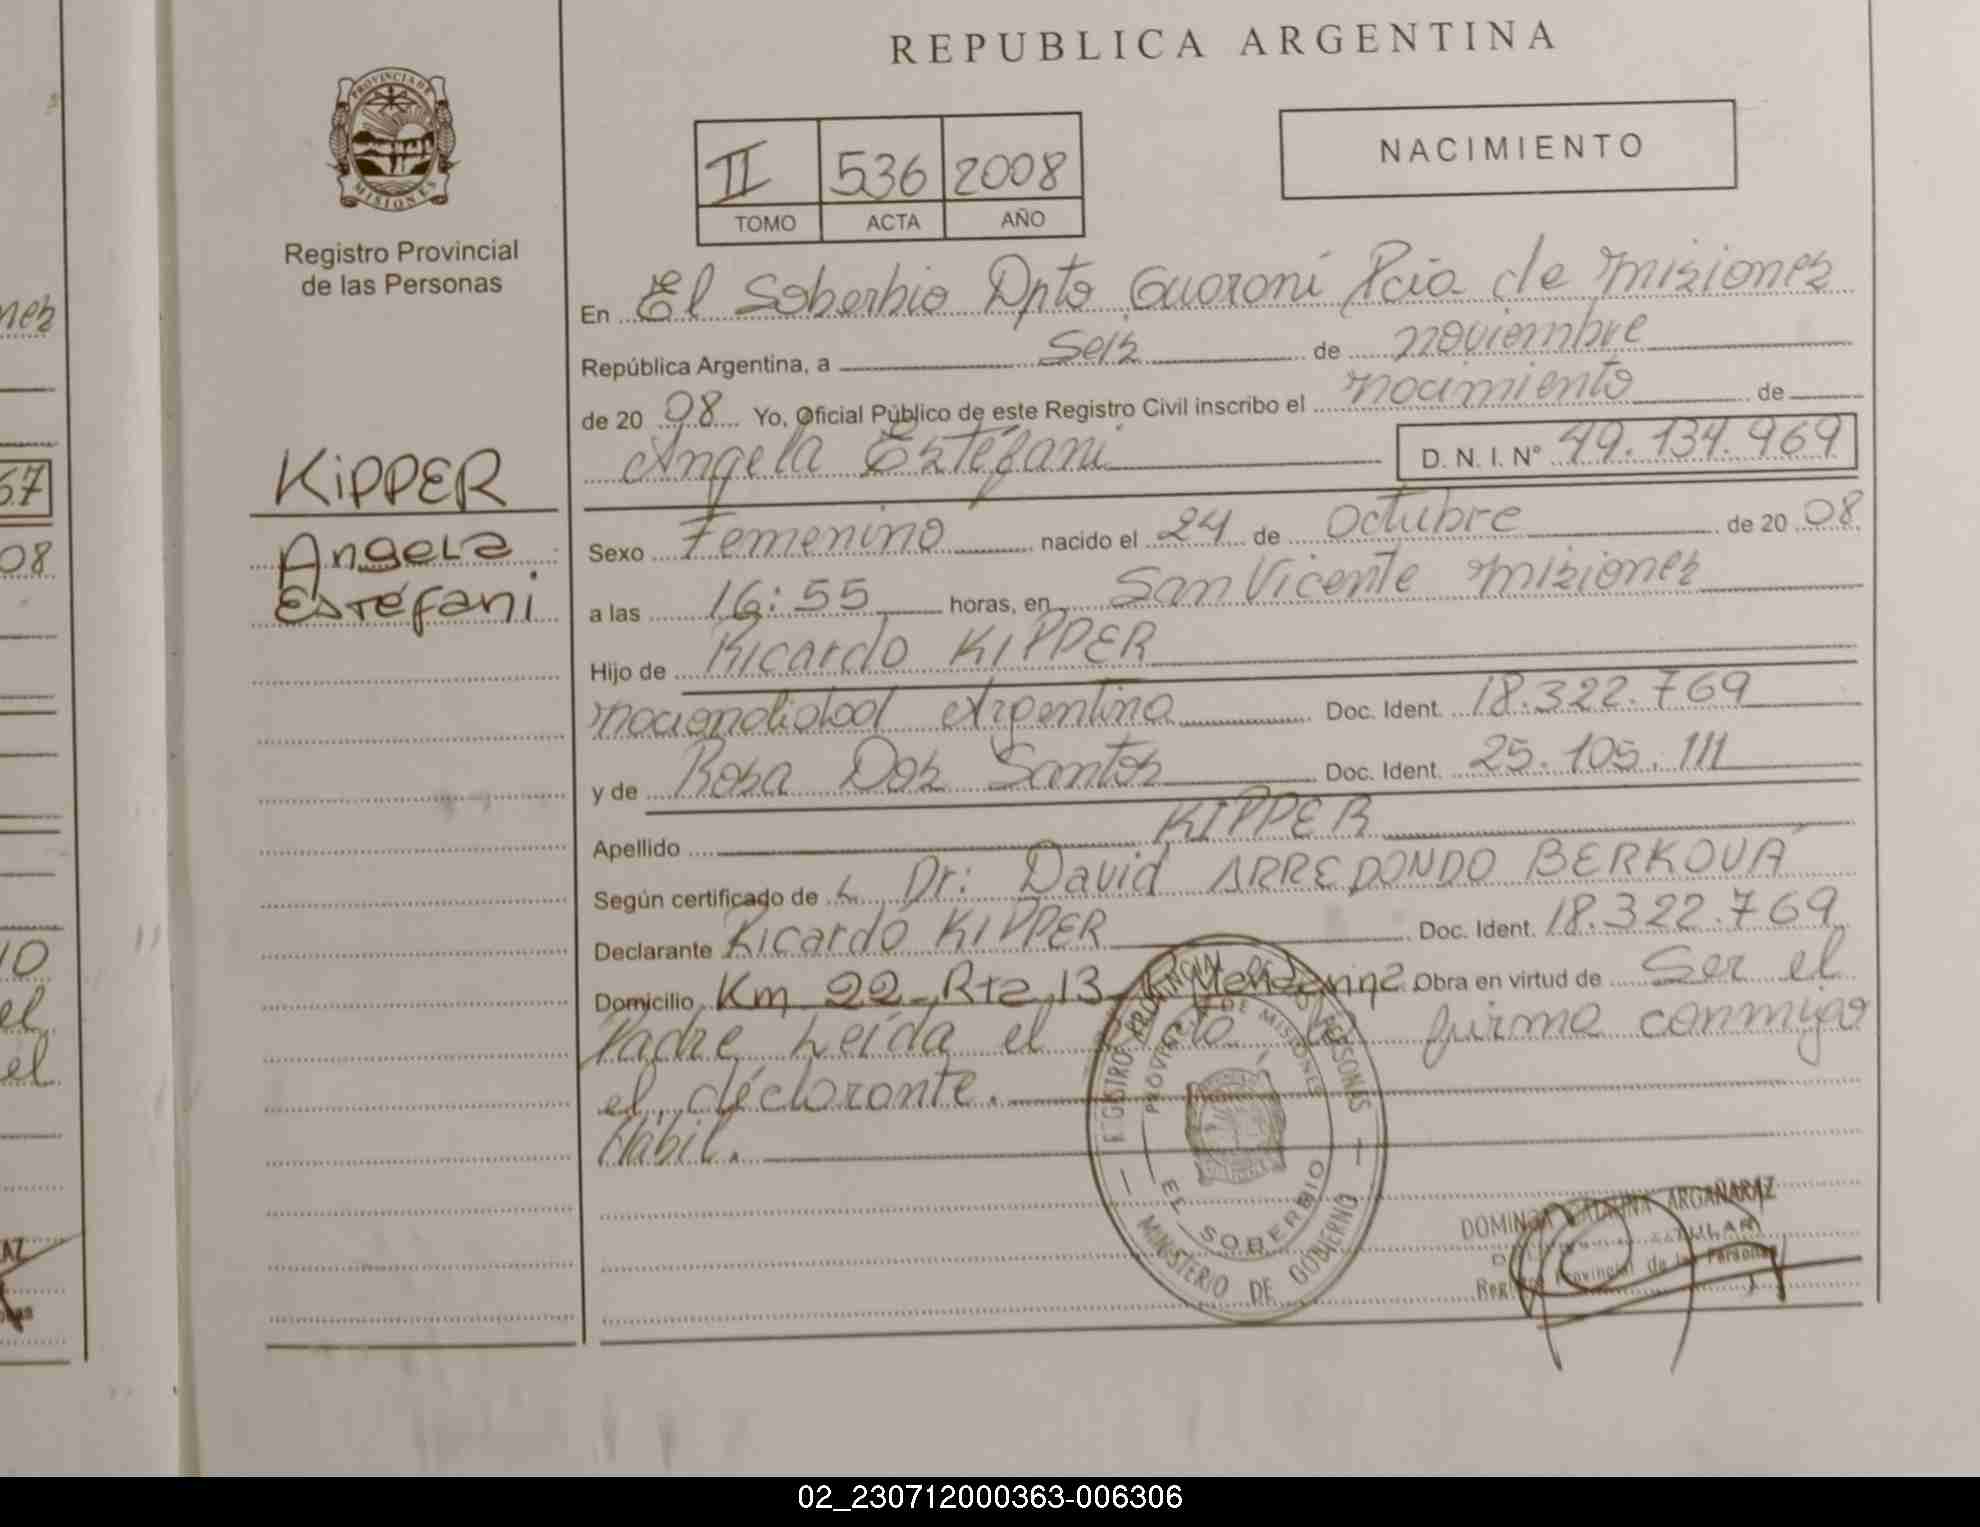 REPUBLICA ARGENTINA
PROVINCIA DE
MISIONES
Registro Provincial
de las Personas
II 536 2008
TOMO ACTA AÑO
NACIMIENTO
En El Soberbio Dpto Guaraní Pcia de misiones
República Argentina, a seis de noviembre
de 20 08 Yo, Oficial Público de este Registro Civil inscribo el nacimiento de
Angela Estéfani D. N. I. Nº 49.134.969
KiPPER
Angela
Estéfani
Sexo Femenino nacido el 24 de Octubre de 20 08
a las 16:55 horas, en San Vicente misiones
Hijo de Ricardo KIPPER
nacionalidad Argentina Doc. Ident. 18.322.769
y de Rosa Dos Santos Doc. Ident. 25.105.111
Apellido KIPPER
Según certificado de Dr: David ARREDONDO BERKOVA
Declarante Ricardo KIPPER Doc. Ident. 18.322.769
Domicilio Km 22 Rta 13 Obra en virtud de Ser el
Padre Leída el la firma conmigo
el declarante.
Habil.
REGISTRO PROVINCIAL DE LAS PERSONAS
PROVINCIA DE MISIONES
EL SOBERBIO
MINISTERIO DE GOBIERNO
DOMINGA ARGAÑARAZ
TITULAR
Registro Provincial de las Personas
67
08
10
el
el
02_230712000363-006306